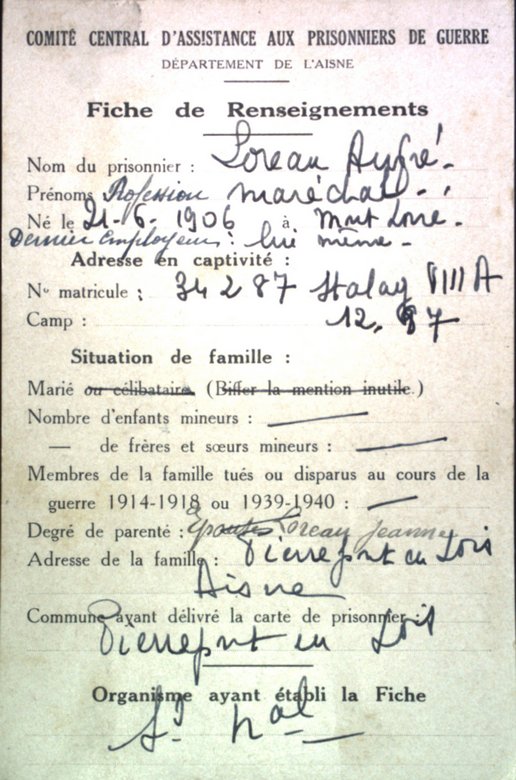 COMITÉ CENTRAL D'ASSISTANCE AUX PRISONNIERS DE GUERRE
DÉPARTEMENT DE L'AISNE
Fiche de Renseignements
Nom du prisonnier : Loreau
Prénoms Profession maréchal
Né le 21-6-1906 à
Dernier employeur : lui même -
Adresse en captivité :
N° matricule : 34287 Stalag VIII A
Camp : 12.
Situation de famille :
Marié ou célibataire (Biffer la mention inutile.)
Nombre d'enfants mineurs :
— de frères et sœurs mineurs :
Membres de la famille tués ou disparus au cours de la
guerre 1914-1918 ou 1939-1940 :
Degré de parenté : Loreau Jeanne
Adresse de la famille : Pierrepont en Lois
Aisne
Commune ayant délivré la carte de prisonnier :
Pierrepont en Lois
Organisme ayant établi la Fiche